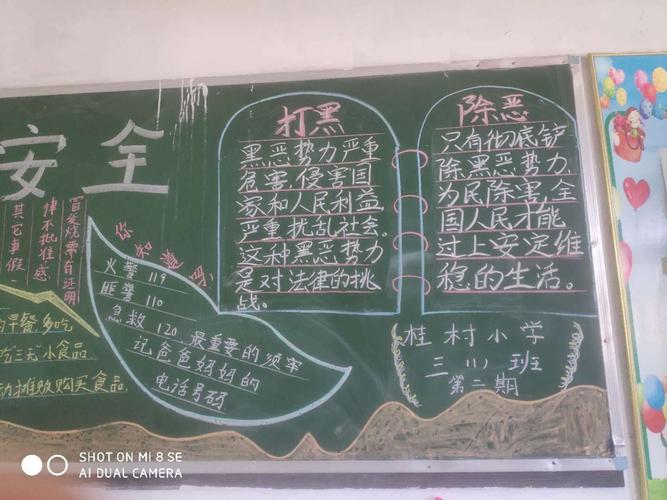 安全
打黑
黑恶势力严重
危害,侵害国
家和人民利益
严重,扰乱社会。
这种黑恶势力
是对法律的挑
战。
除恶
只有彻底铲
除黑恶势力
为民除害,全
国人民才能
过上安定维
稳的生活。
冒发烧需自证明
律不批准感
其它事假、
你知道吗
火警 119
匪警 110
急救 120,最重要的须牢
记爸爸妈妈的
电话号码
早餐,多吃
吃三无小食品
摊贩购买食品
桂村小学
三(1)班
第二期
SHOT ON MI 8 SE
AI DUAL CAMERA